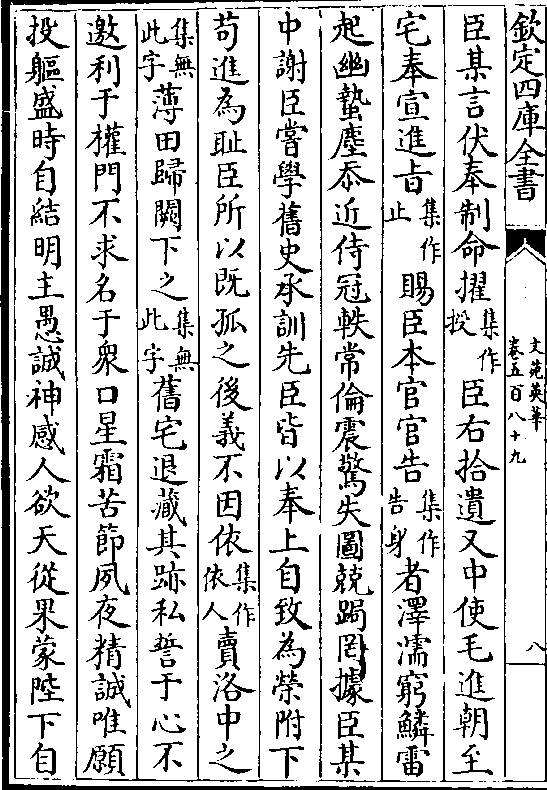 欽定四庫全書
文苑英華
卷五百八十九
八
臣某言伏奉制命擢集作授臣右拾遺又中使毛進朝至
宅奉宣進旨集作止賜臣本官官告集作告身者澤濡窮鱗雷
起幽蟄塵忝近侍冠軼常倫震驚失圖兢跼罔據臣某
中謝臣嘗學舊史承訓先臣皆以奉上自致為榮附下
苟進為耻臣所以既孤之後義不因依集作依人賣洛中之
集無此字薄田歸闕下之集無此字舊宅退藏其跡私誓于心不
邀利于權門不求名于衆口星霜苦節夙夜精誠唯願
投軀盛時自結明主愚誠神感人欲天從果蒙陛下自